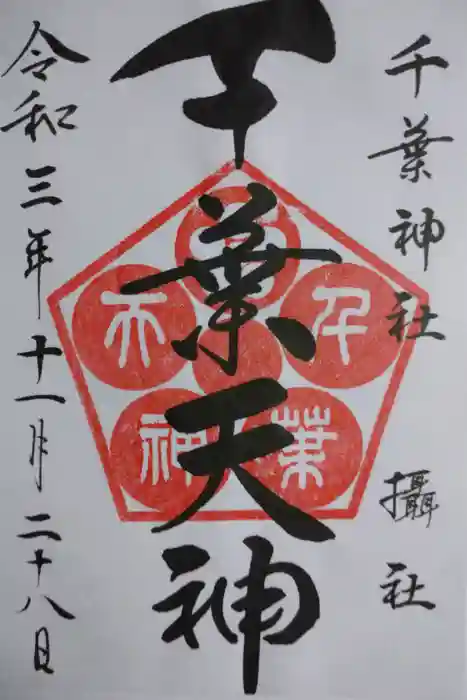 千葉神社 攝社
千葉天神
令和三年十一月二十八日
千
葉
神
天